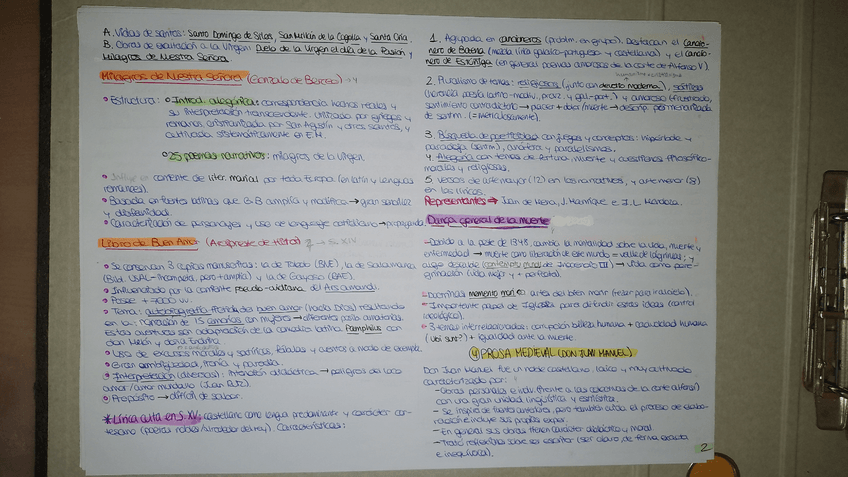 A. Vidas de santos: Santo Domingo de Silos, San Millán de la Cogolla y Santa Oria.
B. Obras de exaltación a la Virgen: Duelo de la Virgen el día de la Pasión y
Milagros de Nuestra Señora
Milagros de Nuestra Señora (Gonzalo de Berceo)
Estructura: Introd. alegórica: correspondencia hechos reales y
su interpretación transcendente. Utilizado por griegos y
romanos, cristianizada por San Agustín y otros santos, y
cultivada sistemáticamente en E.M.
25 poemas narrativos: milagros de la Virgen.
corriente de liter. marial por toda Europa (en latín y lenguas
romances).
Basada en fuentes latinas que G.B amplía y modifica → gran sencillez
y
Caracterización de personajes y uso de lenguaje castellano →
Libro de Buen Amor (Arcipreste de Hita) → S. XIV
Se conservan 3 copias manuscritas: la de Toledo (BNE), la de Salamanca
(Bibl. USAL - incompleta pero + amplia) y la de Gayoso (RAE).
Influenciado por la corriente pseudo-ovidiana del Ars amandi.
Posee + 7000 vv.
Tema: autobiografía
en la narración de 15 amoríos con mujeres → diferente posic. amatorias.
Estas aventuras son adaptación de la comedia latina Pamphilus con
don Melón y doña Endrina
Uso de excursos morales y satíricos, fábulas y cuentos a modo de exemplo.
Gran ambigüedad, ironía y parodia.
Interpretación (diversas): intención didáctica → peligros del loco
amor / amor mundano (Juan Ruiz).
Propósito → difícil de saber.
* Lírica culta en S. XV: castellano como lengua predominante y carácter cor-
tesano (poetas nobles / alrededor del rey). Características:
1. Agrupada en cancioneros (problm. en grupo). Destacan el Cancio-
nero de Baena (mezcla lírica galaico-portuguesa y castellana) y el Cancio-
nero de Estúñiga (en general poemas amorosos de la corte de Alfonso V).
2. Pluralismo de temas: religiosos (junto con devotio moderna), satíricos
y amoroso
sentimiento contradictorio → placer + dolor / muerte → descrip. pormenorizada
de sentim.
3. Búsqueda de con juegos y conceptos: hipérbole y
paradoja (sentm.), anáfora y paralelismos.
4. Alegoría con temas de fortuna, muerte y cuestiones filosófico-
morales y religiosas.
5. Versos de arte mayor (12) en los narrativos, y arte menor (8)
en los líricos.
Representantes → Juan de Mena, J. Manrique e I. L. Mendoza.
Danza general de la muerte
- Debido a la peste de 1348, cambia la mentalidad sobre la vida, muerte y
enfermedad → muerte como liberación de este mundo = valle de lágrimas y
algo deseable (contemptu mundi de Inocencio III) → vida como pere-
grinación (vida mejor y + perfecta).
- Doctrinas memento mori ex antes del bien morir (rezar para ir al cielo).
- Importante papel de Iglesia para difundir estas ideas (control
ideológico).
- 3 temas interrelacionados: corrupción belleza humana + caducidad humana
(ubi sunt?) + igualdad ante la muerte.
4 PROSA MEDIEVAL (DON JUAN MANUEL)
Don Juan Manuel fue un noble castellano, laico y muy cultivado
caracterizado por:
- Obras personales e indiv. (frente a las colectivas de la corte alfonsí)
con una gran unidad lingüística y estilística.
- Se inspira de fuentes anteriores, pero también cuida el proceso de elabo-
ración e incluye sus propias exper.
- En general sus obras tienen carácter didáctico y moral
- Trata reflexiones sobre ser escritor (ser claro, de forma exacta
e inequívoca).
2